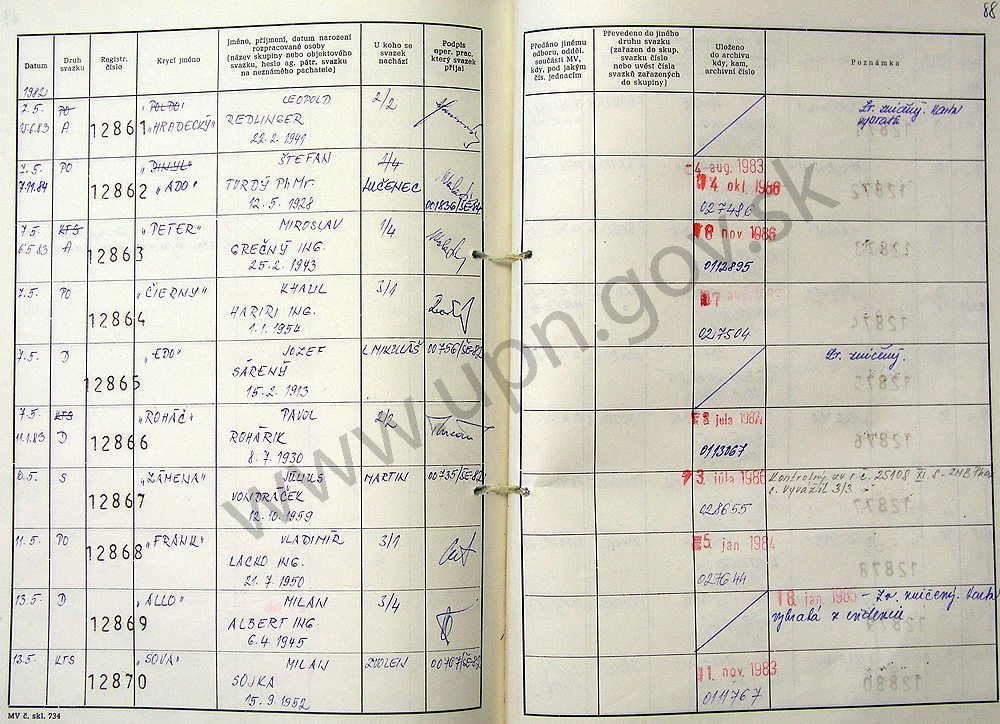 88
Datum
Druh svazku
Registr. číslo
Krycí jméno
Jméno, příjmení, datum narození
rozpracované osoby
(název skupiny nebo objektového
svazku, heslo ag. pátr. svazku
na neznámého pachatele)
U koho se
svazek
nachází
Podpis
oper. prac.
který svazek
přijal
Předáno jinému
odboru, odděl.
součásti MV,
kdy, pod jakým
čís. jednacím
Převedeno do jiného
druhu svazku
(zařazen do skup.
svazku číslo
nebo uvést čísla
svazků zařazených
do skupiny)
Uloženo
do archivu
kdy, kam,
archivní číslo
Poznámka
1982
7.5. PO "POLDO" LEOPOLD 2/2
A 12861 "HRADECKÝ" REDLINGER
22.2.1941
Zv. zničený. Karta
vybratá
7.5. PO "DINYL" ŠTEFAN 1/4
7.11.84 12862 "ADO" TVRDÝ PhMr. LUČENEC
12.5.1928 001836/ŠE-84
-4 aug. 1983
14 okt. 1986
027486
7.5. KTS "PETER" MIROSLAV 1/4
6.5.83 A 12863 GREČNÝ ING.
25.2.1943
18 nov 1986
0112895
7.5. PO "ČIERNY" KHALIL 3/1
12864 HARIRI ING.
1.1.1954
027504
7.5. D "EDO" JOZEF L MIKULÁŠ 00756/ŠE-82
12865 SÁRENÝ
15.2.1913
Zv. zničený.
7.5. KTS "ROHÁČ" PAVOL 2/2
11.1.83 D 12866 ROHÁRIK
8.7.1930
3 júla 1987
0113067
S "ZÁMENA" JÚLIUS MARTIN 00735/ŠE-82
12867 VONDRÁČEK
12.10.1959
3. júla 1986
028655
Kontrolný zv r č. 25108 XI. S-ZNB
Vyvážil 3/3
11.5. PO 12868 "FRANK" VLADIMÍR 3/1
LACKO ING.
21.7.1950
5. jan 1984
027644
13.5. D "ALLO" MILAN 3/4
12869 ALBERT ING
6.4.1945
18. jan 1983 - Zv. zničený. Karta
vybratá z evidencie
13.5. KTS "SOVA" MILAN ZVOLEN 00767/ŠE-82
12870 SOJKA
15.9.1952
11. nov. 1983
0111767
MV č. skl. 734
www.upn.gov.sk